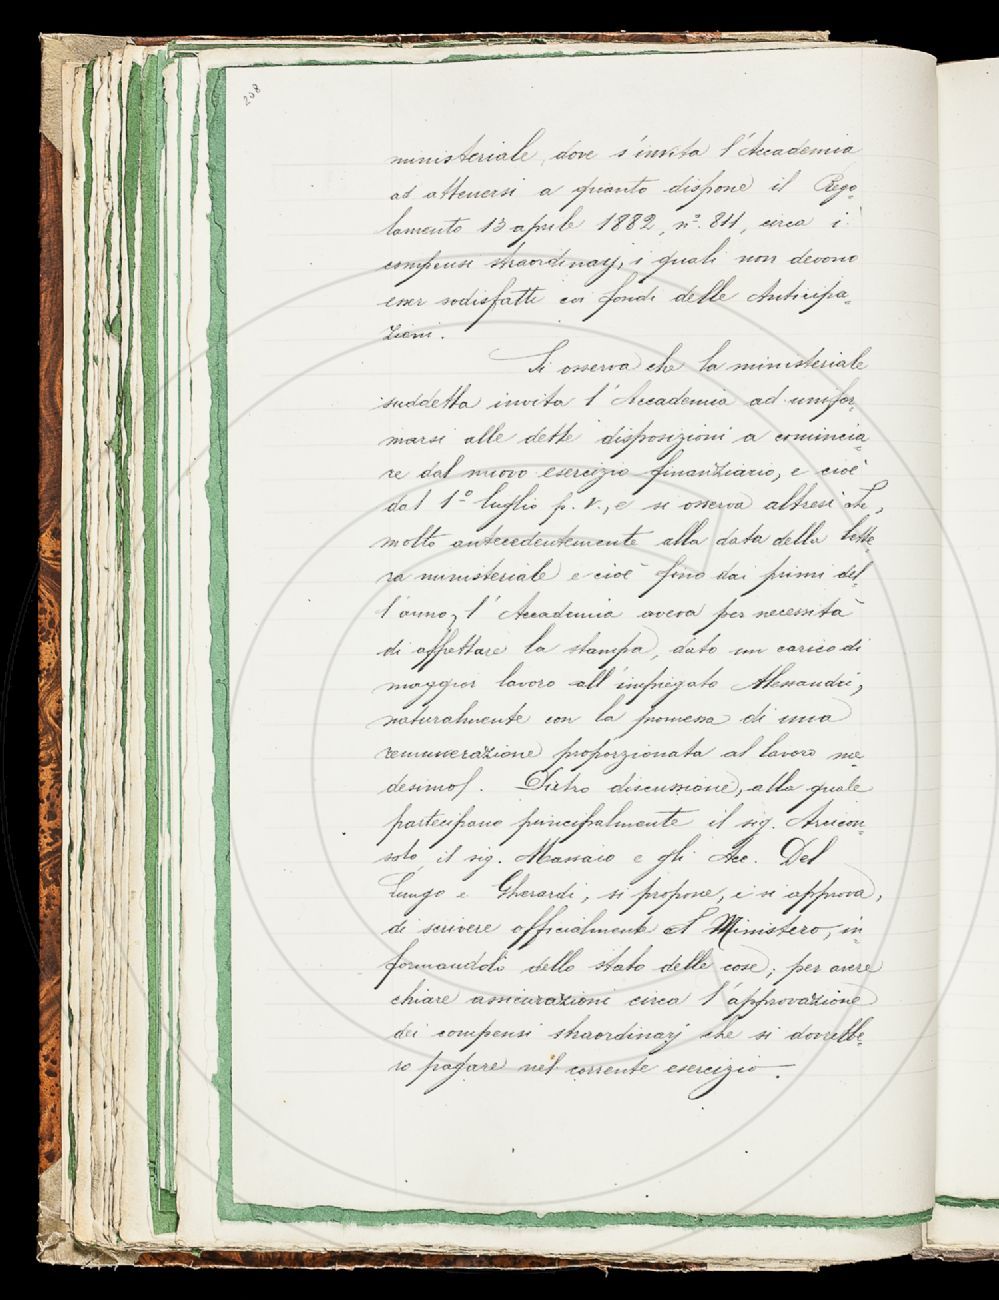 208
ministeriale, dove s'invita l'Accademia
ad attenersi a quanto dispone il Rego-
lamento 13 aprile 1882, n.º 811, circa i
compensi straordinarj, i quali non devono
esser sodisfatti coi fondi delle Anticipa-
zioni.
Si osserva che la ministeriale
suddetta invita l'Accademia ad unifor-
marsi alle dette disposizioni a comincia-
re dal nuovo esercizio finanziario, e cioè
dal 1º luglio p. v., e si osserva altresì che,
molto antecedentemente alla data della lette-
ra ministeriale e cioè fino dai primi del-
l'anno, l'Accademia aveva per necessità
di affrettare la stampa, dato un carico di
maggior lavoro all'impiegato Alessandri,
naturalmente con la promessa di una
remunerazione proporzionata al lavoro me-
desimo. Dietro discussione, alla quale
partecipano principalmente il sig. Arcicon-
solo, il sig. Massaio e gli Acc. Del
Lungo e Gherardi, si propone, e si approva,
di scrivere officialmente al Ministero, in-
formandolo dello stato delle cose, per avere
chiare assicurazioni circa l'approvazione
dei compensi straordinarj che si dovrebbe-
ro pagare nel corrente esercizio.